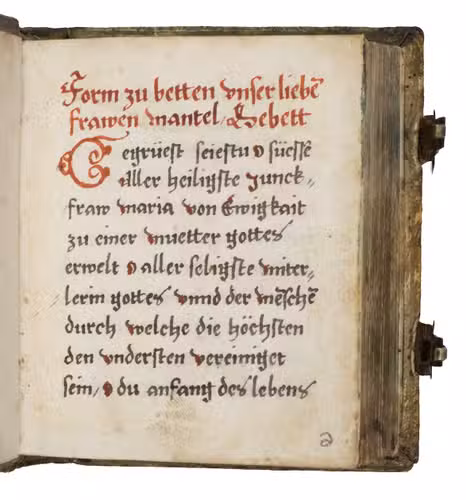 Form zu betten vnser liebē
frawen mantel Gebett
Gegrüest seiestu O süesse
aller heiligste Junck⸗
fraw maria von Ewigkait
zu einer muetter gottes
erwelt O aller seligste miter⸗
lerin gottes vnnd der mēschē
durch welche die höchsten
den vndersten vereiniget
sein, O du anfang des lebens
a